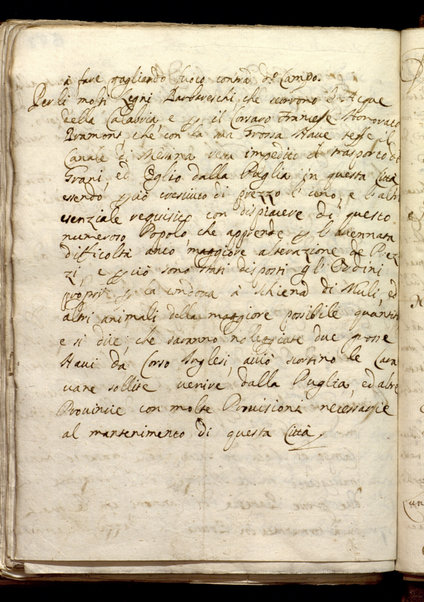 à fare gagliendo fuoco contra d.º Campo.
Per li molti Legni Barbareschi, che scorrono l'Acque
della Calabria e p il Corsaro Franzese Honorato
che con la sua grossa Nave tesse il
Canale di Messina vien impedito il trasporto di
Grani, ed Oglio dalla Puglia in questa Città
esendo p ciò cresciuto di prezzo l'uno, e l'altro
esenziale requisito con dispiacere di questo
numeroso Popolo che apprende p l'accennata
difficoltà anco maggiore alterazione de Prez
zi, e p ciò sono stati disposti gl'Ordini
proprij p la condotta à schiena di Muli, ed
altri animali della maggiore posibile quantità
e si dice, che saranno noleggiate due grosse
Navi da Corso Inglesi, acciò scortino le Caro
vane sollite venire dalla Puglia, ed altre
Provincie con molte Provisioni necessarie
al mantenimento di questa Città